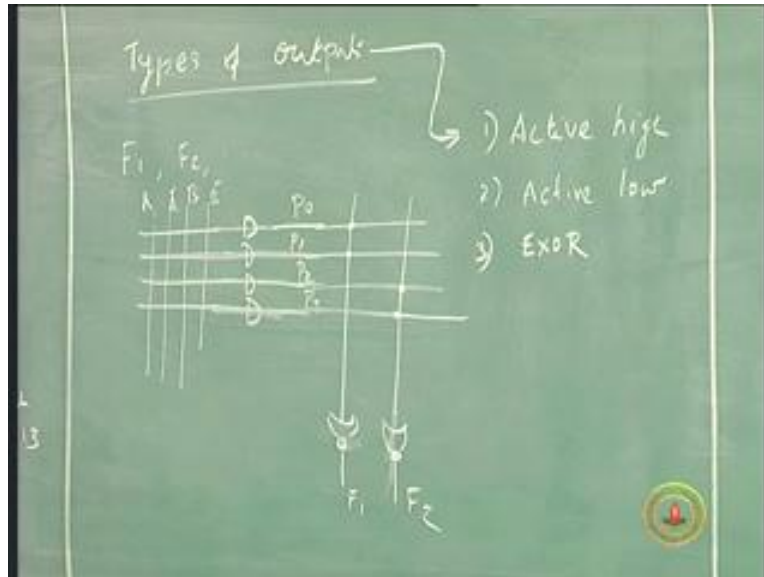 Types of output
1) Active high
2) Active low
3) EXOR
F1, F2,
A Ā B B̄
P0
P1
P2
F1 F2
13